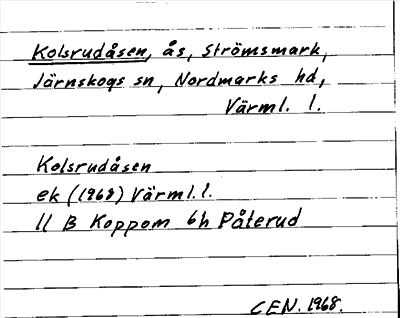 Kolsrudåsen, ås, Strömsmark,
Järnskogs sn, Nordmarks hd,
Värml. l.
Kolsrudåsen
ek (1968) Värml. l.
11 B Koppom 6h Påterud
CEN. 1968.